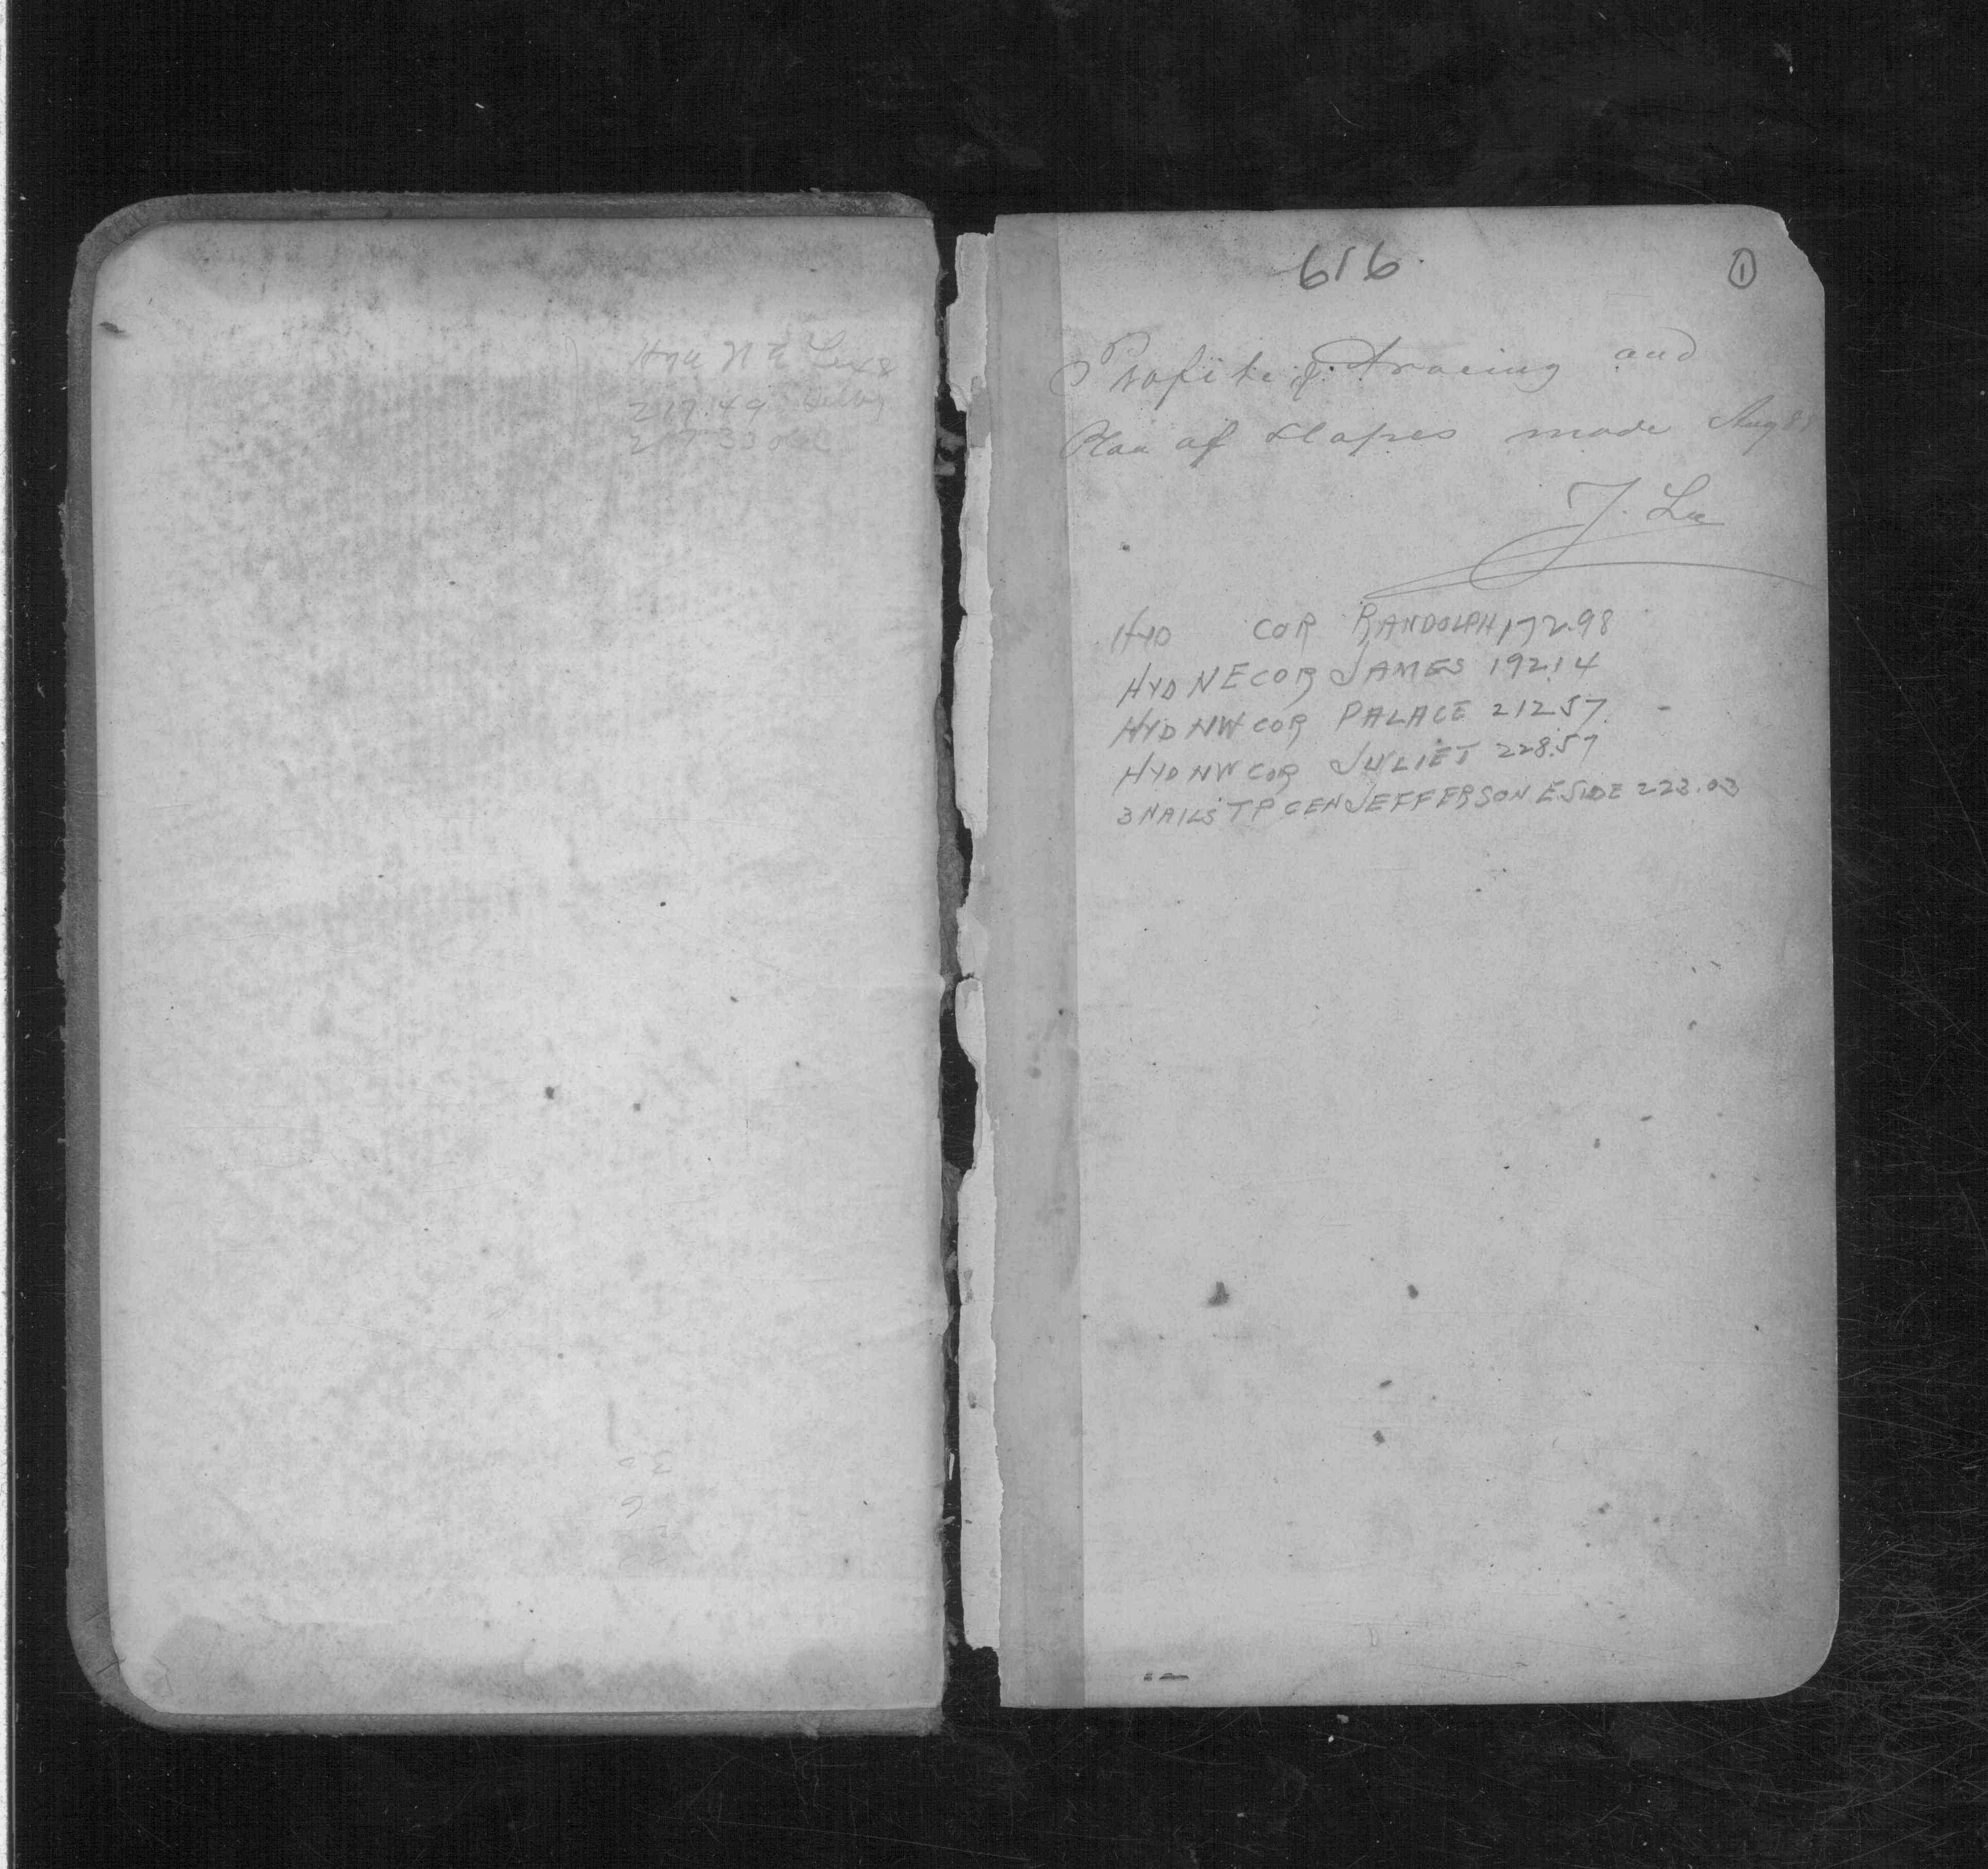 Hyd N E Lex &
217.49
217.33
616
1
Profile & tracing and
Plan of slopes made Aug 8
J. Lee
HYD COR RANDOLPH 172.98
HYD NE COR JAMES 192.14
HYD NW COR PALACE 212.57
HYD NW COR JULIET 228.57
3 NAILS TP CEN JEFFERSON E SIDE 223.03